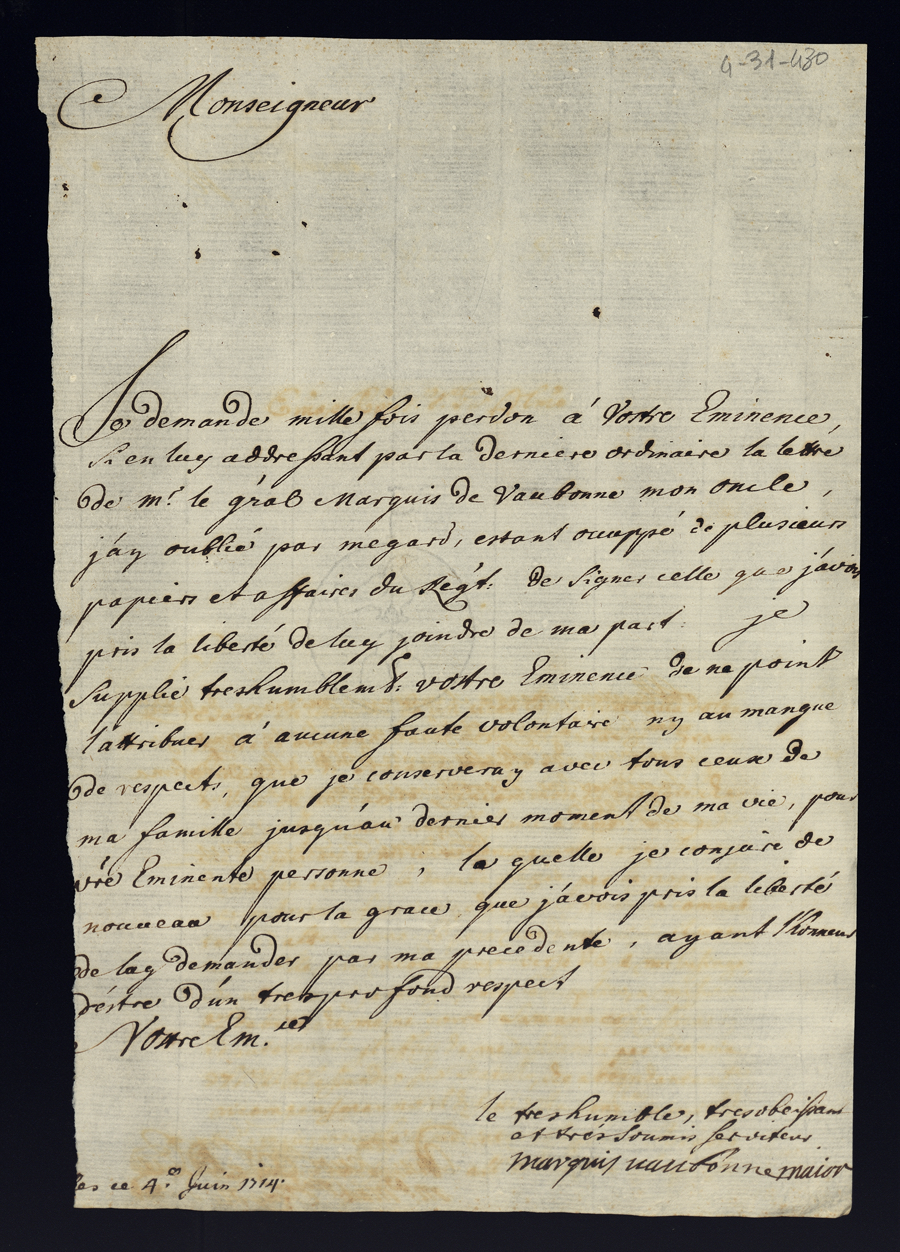 4-31-430
Monseigneur
Je demande mille fois perdon á Vostre Eminence,
Si en luy addressant par la derniere ordinaire la lettre
de mr. le gr̃al Marquis de Vaubonne mon oncle,
j'ay oublié par megard, estant ocuppé de plusieurs
papiers et affaires du Regt. de signer celle que j'avois
pris la liberté de luy joindre de ma part. je
supplie treshumblemt. vostre Eminence de ne point
l'attribuer á aucune faute volontaire ny au manque
de respects, que je conserveray avec tous ceux de
ma famille jusqu'au dernier moment de ma vie, pour
vr̃e Eminente personne, la quelle je conjure de
nouveau pour la grace que j'avois pris la liberté
de luy demander par ma precedente, ayant l'honneur
d'éstre d'un tres profond respect
Vostre Em.ce
le treshumble, tresobeissant
et trés soumis serviteur
marquis vaubonne maior
ce 4e. Juin 1714.